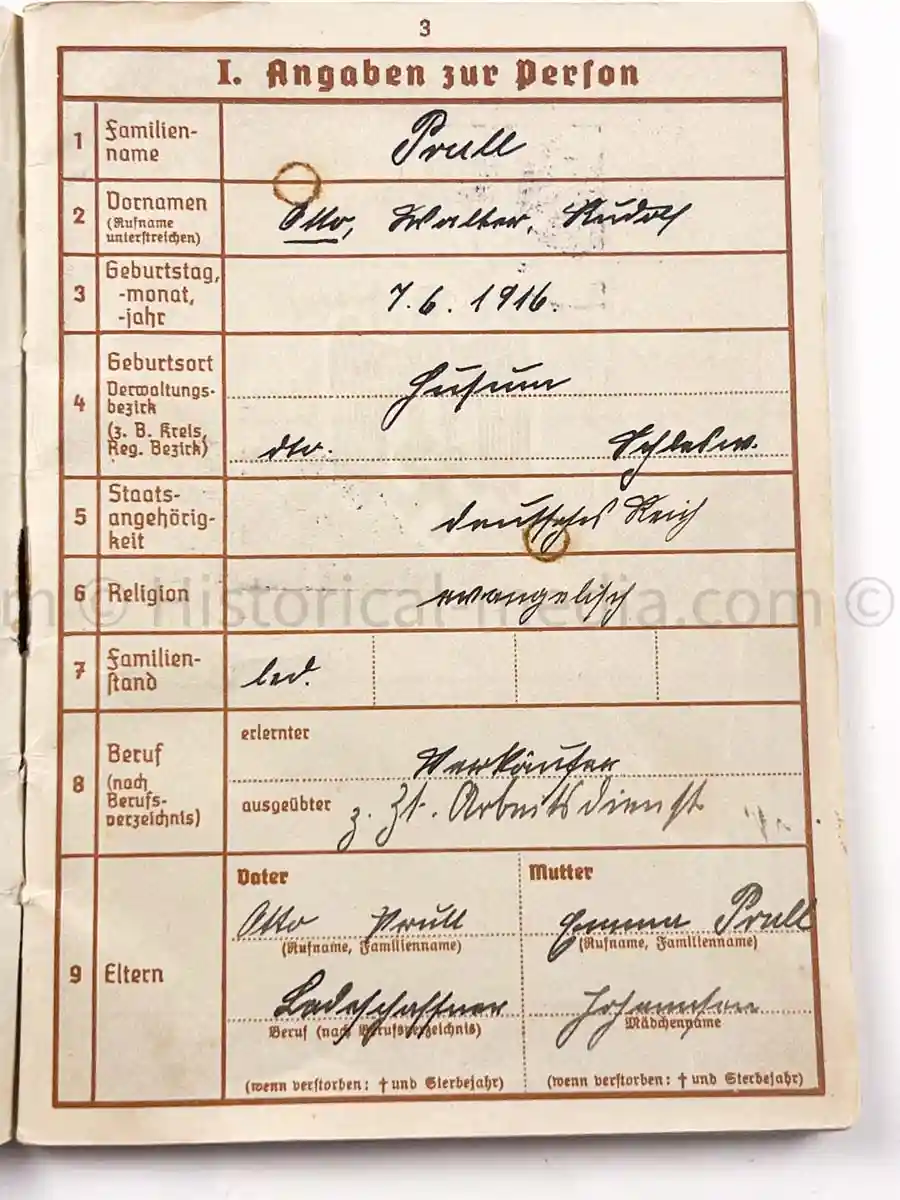 3
I. Angaben zur Person
1 Familien-
name
Prull
2 Vornamen
(Rufname
unterstreichen)
Otto, Walter, Rudolf
3 Geburtstag,
-monat,
-jahr
7. 6. 1916.
4 Geburtsort
Verwaltungs-
bezirk
(z. B. Kreis,
Reg. Bezirk)
Husum
dto. Schlesw.
5 Staats-
angehörig-
keit
deutsches Reich
6 Religion
evangelisch
7 Familien-
stand
led.
8 Beruf
(nach
Berufs-
verzeichnis)
erlernter
Verkäufer
ausgeübter z. Zt. Arbeitsdienst
9 Eltern
Vater
Otto Prull
(Rufname, Familienname)
Ladeschaffner
Beruf (nach Berufsverzeichnis)
(wenn verstorben: † und Sterbejahr)
Mutter
Emma Prull
(Rufname, Familienname)
Johannsen
Mädchenname
(wenn verstorben: † und Sterbejahr)
m © Historical-media.com ©